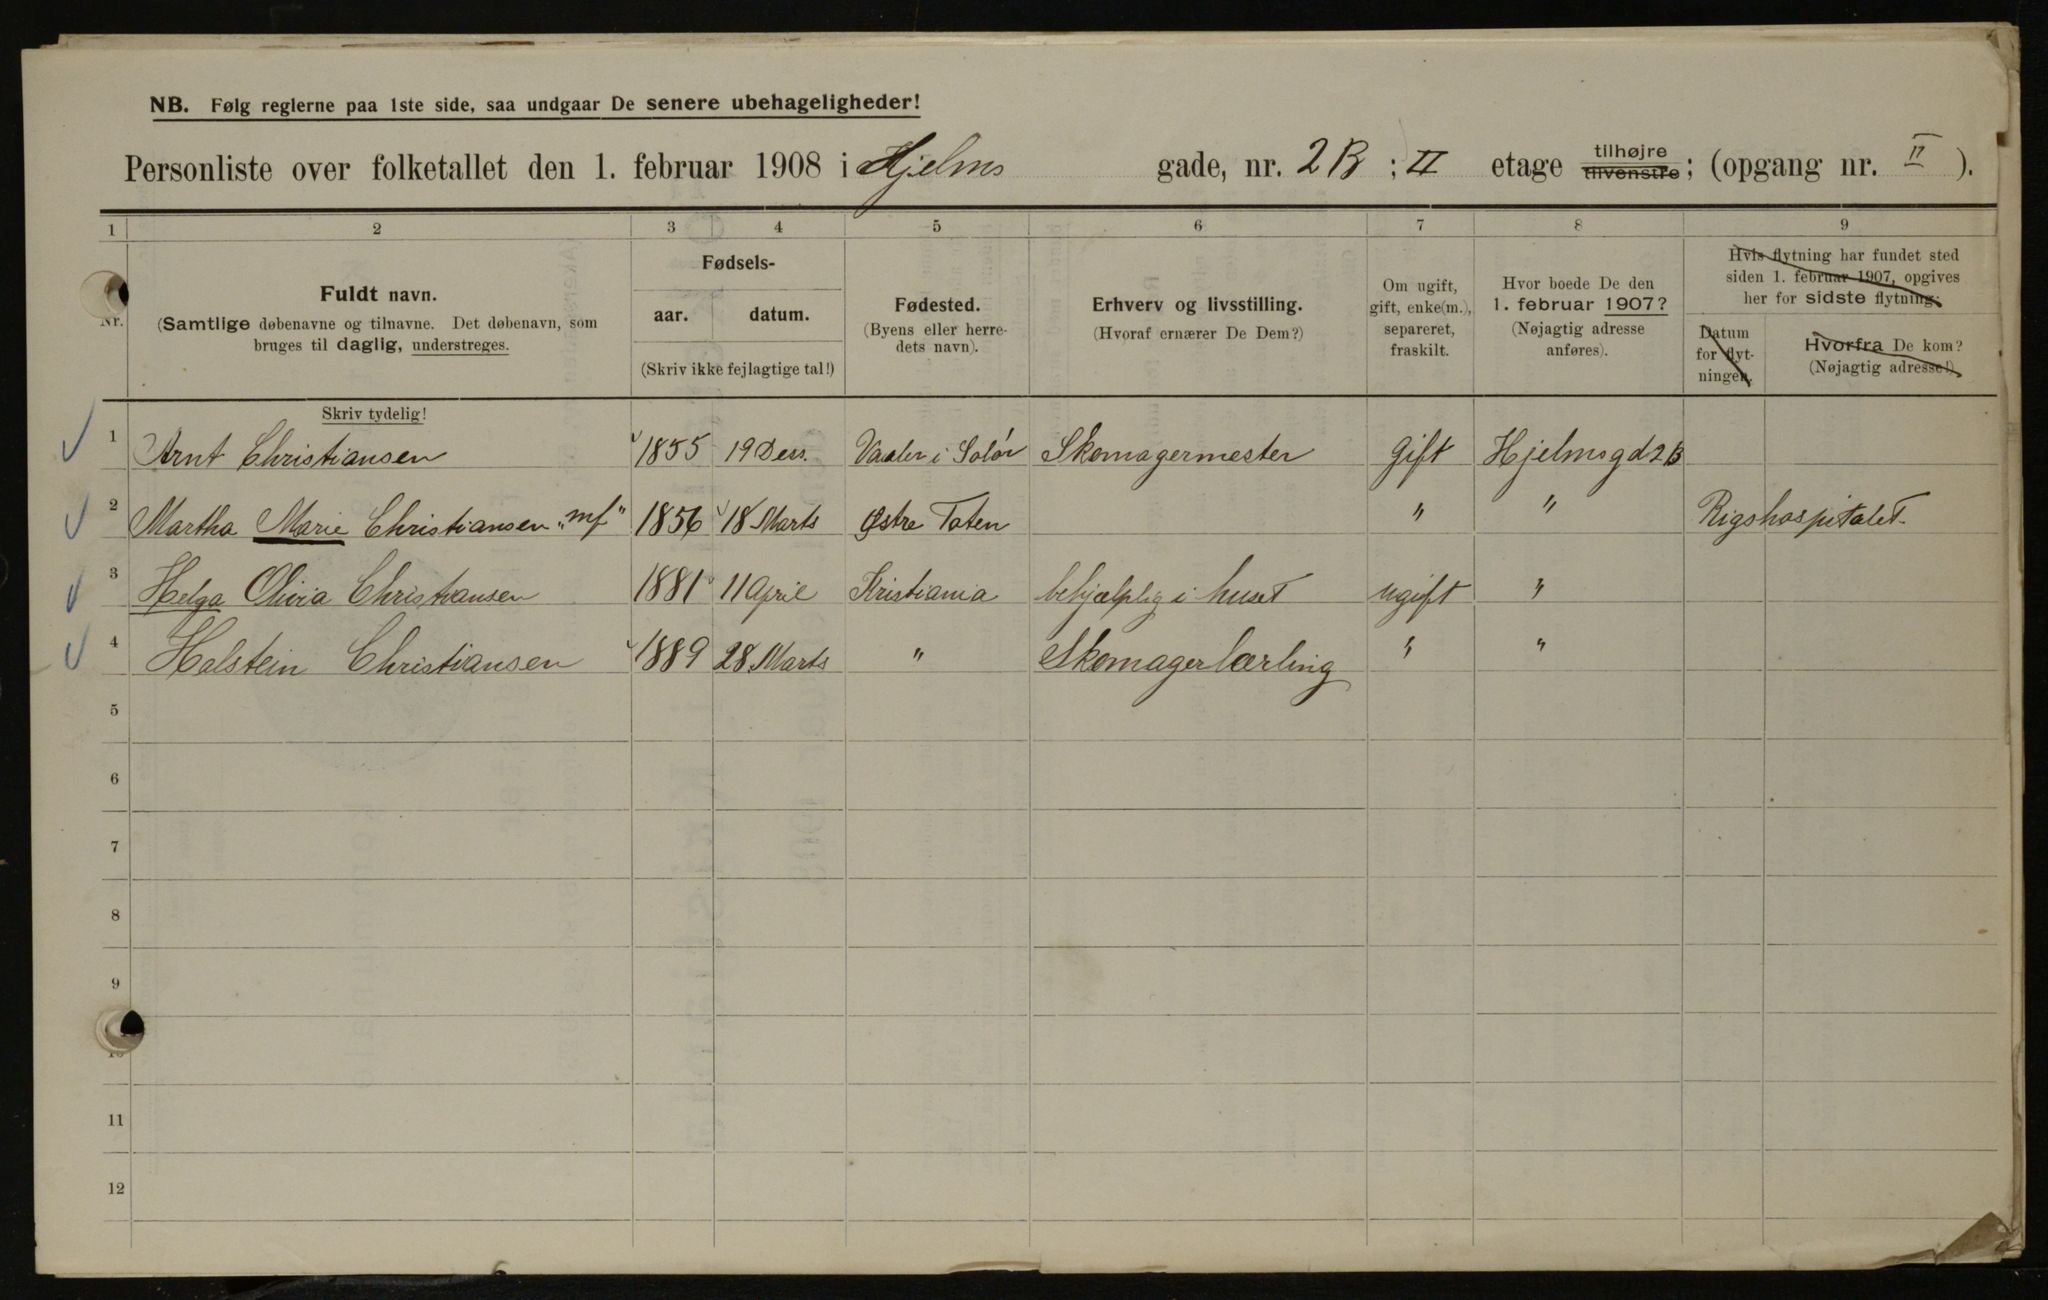 NB. Følg reglerne paa 1ste side, saa undgaar De senere ubehageligheder!
Personliste over folketallet den 1. februar 1908 i Hjelms gade, nr. 2B ; II etage tilhøjre tilvenstre; (opgang nr. II ).
1 2 3 4 5 6 7 8 9
Nr.
Fuldt navn.
(Samtlige døbenavne og tilnavne. Det døbenavn, som
bruges til daglig, understreges.
Fødsels-
aar. datum.
(Skriv ikke fejlagtige tal!)
Fødested.
(Byens eller herre-
dets navn).
Erhverv og livsstilling.
(Hvoraf ernærer De Dem?)
Om ugift,
gift, enke(m.),
separeret,
fraskilt.
Hvor boede De den
1. februar 1907?
(Nøjagtig adresse
anføres).
Hvis flytning har fundet sted
siden 1. februar 1907, opgives
her for sidste flytning:
Datum
for flyt-
ningen.
Hvorfra De kom?
(Nøjagtig adresse!)
Skriv tydelig!
1 Arnt Christiansen 1855 19 Des. Vaaler i Solør Skomagermester gift Hjelmsgd 2B
2 Martha Marie Christiansen „mf" 1856 18 Marts Østre Toten " " Rigshospitalet.
3 Helga Olivia Christiansen 1881 11 April Kristiania behjælplig i huset ugift "
4 Holstein Christiansen 1889 28. Marts " Skomagerlærling " "
5
6
7
8
9
10
11
12